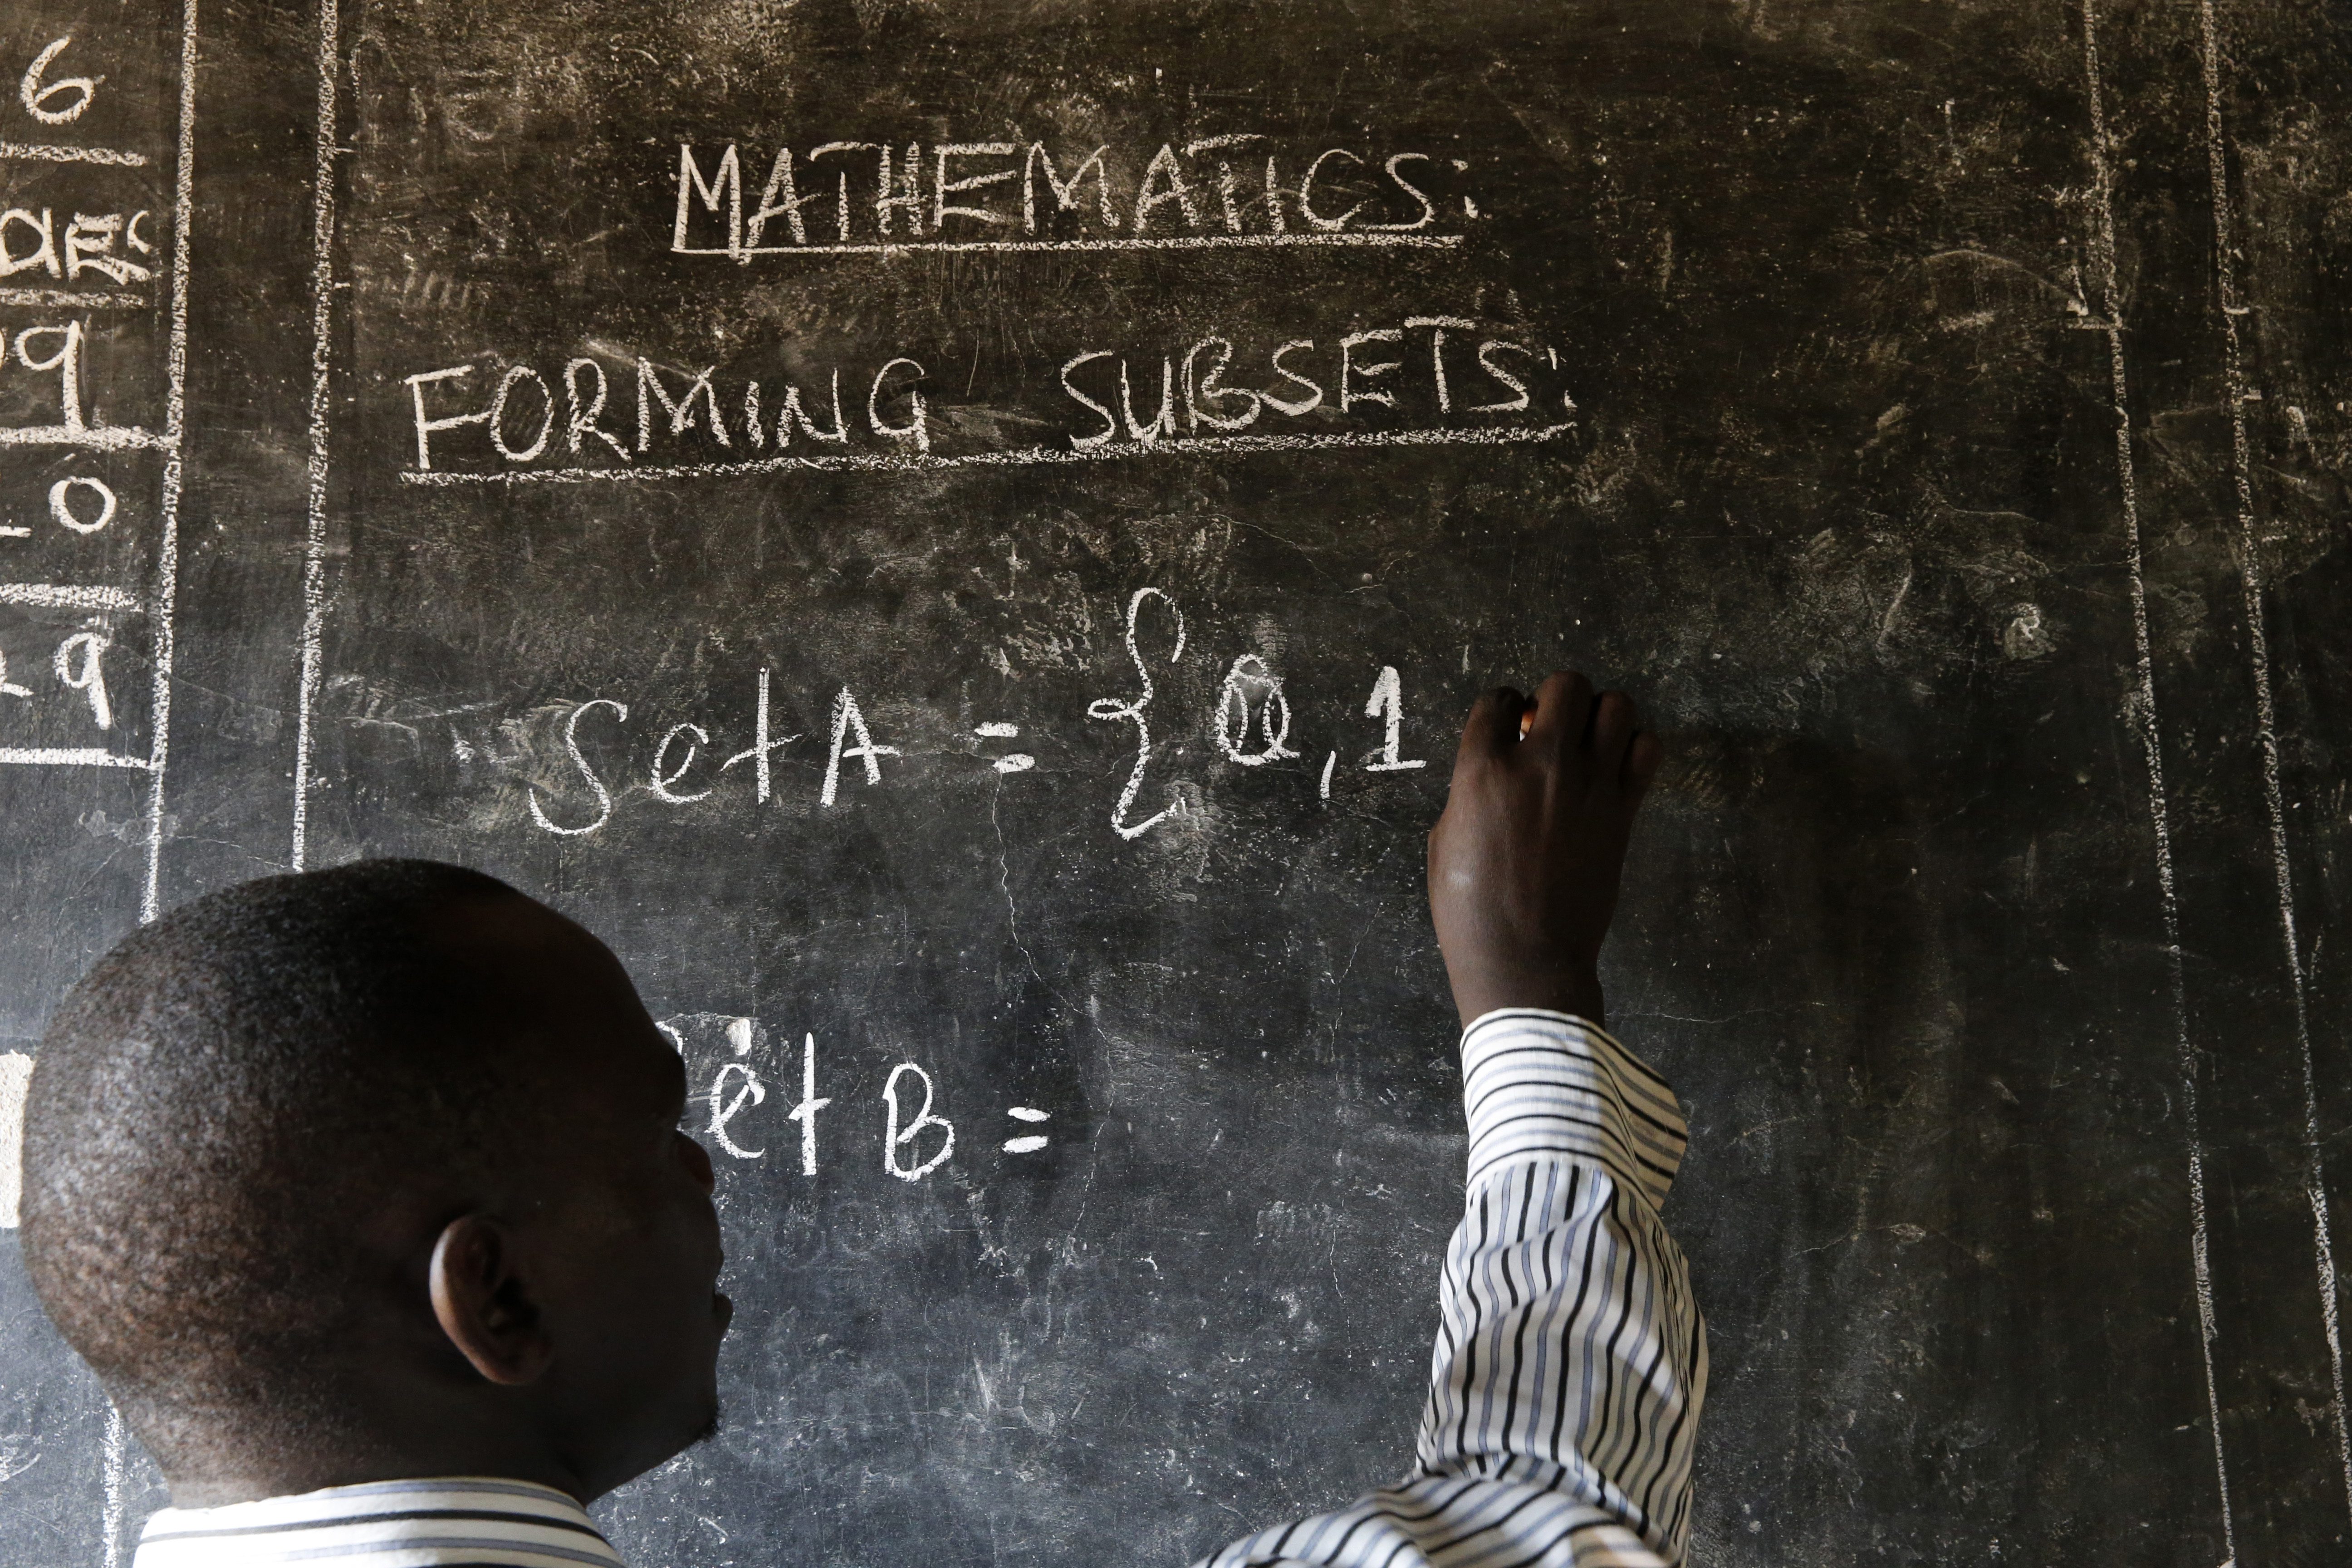 6
09
10
29
MATHEMATICS:
FORMING SUBSETS:
Set A = { 0, 1
Set B =